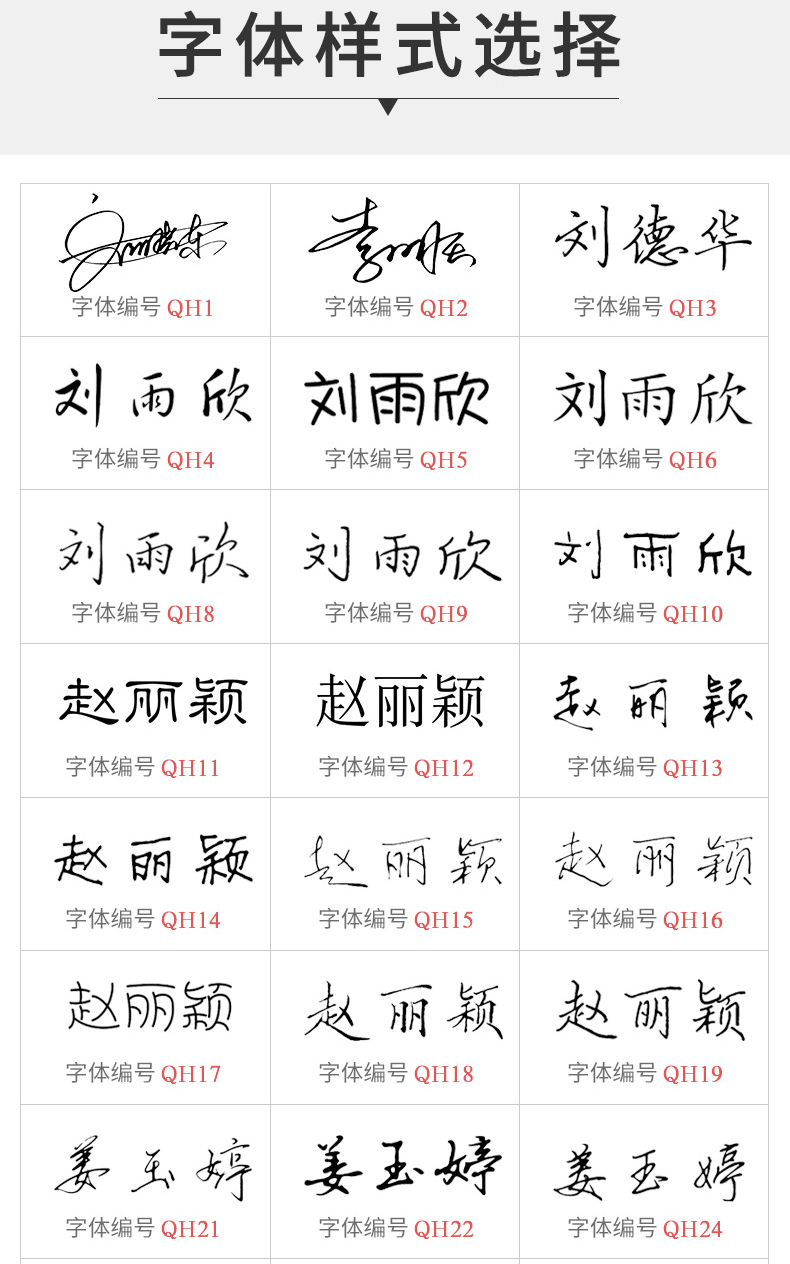 字体样式选择
刘德华
字体编号 QH1
字体编号 QH2
字体编号 QH3
刘雨欣
刘雨欣
刘雨欣
字体编号 QH4
字体编号 QH5
字体编号 QH6
刘雨欣
刘雨欣
刘雨欣
字体编号 QH8
字体编号 QH9
字体编号 QH10
赵丽颖
赵丽颖
赵丽颖
字体编号 QH11
字体编号 QH12
字体编号 QH13
赵丽颖
赵丽颖
赵丽颖
字体编号 QH14
字体编号 QH15
字体编号 QH16
赵丽颖
赵丽颖
赵丽颖
字体编号 QH17
字体编号 QH18
字体编号 QH19
姜玉婷
姜玉婷
姜玉婷
字体编号 QH21
字体编号 QH22
字体编号 QH24